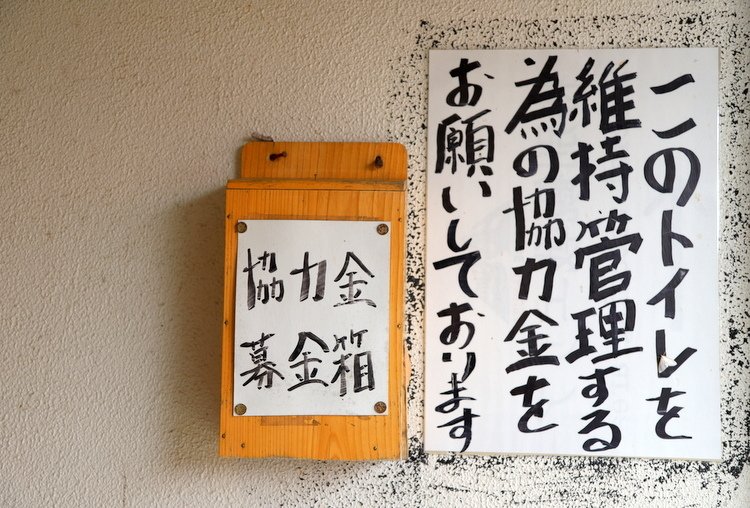 このトイレを
維持管理する
為の協力金を
お願いしております
協力金
募金箱